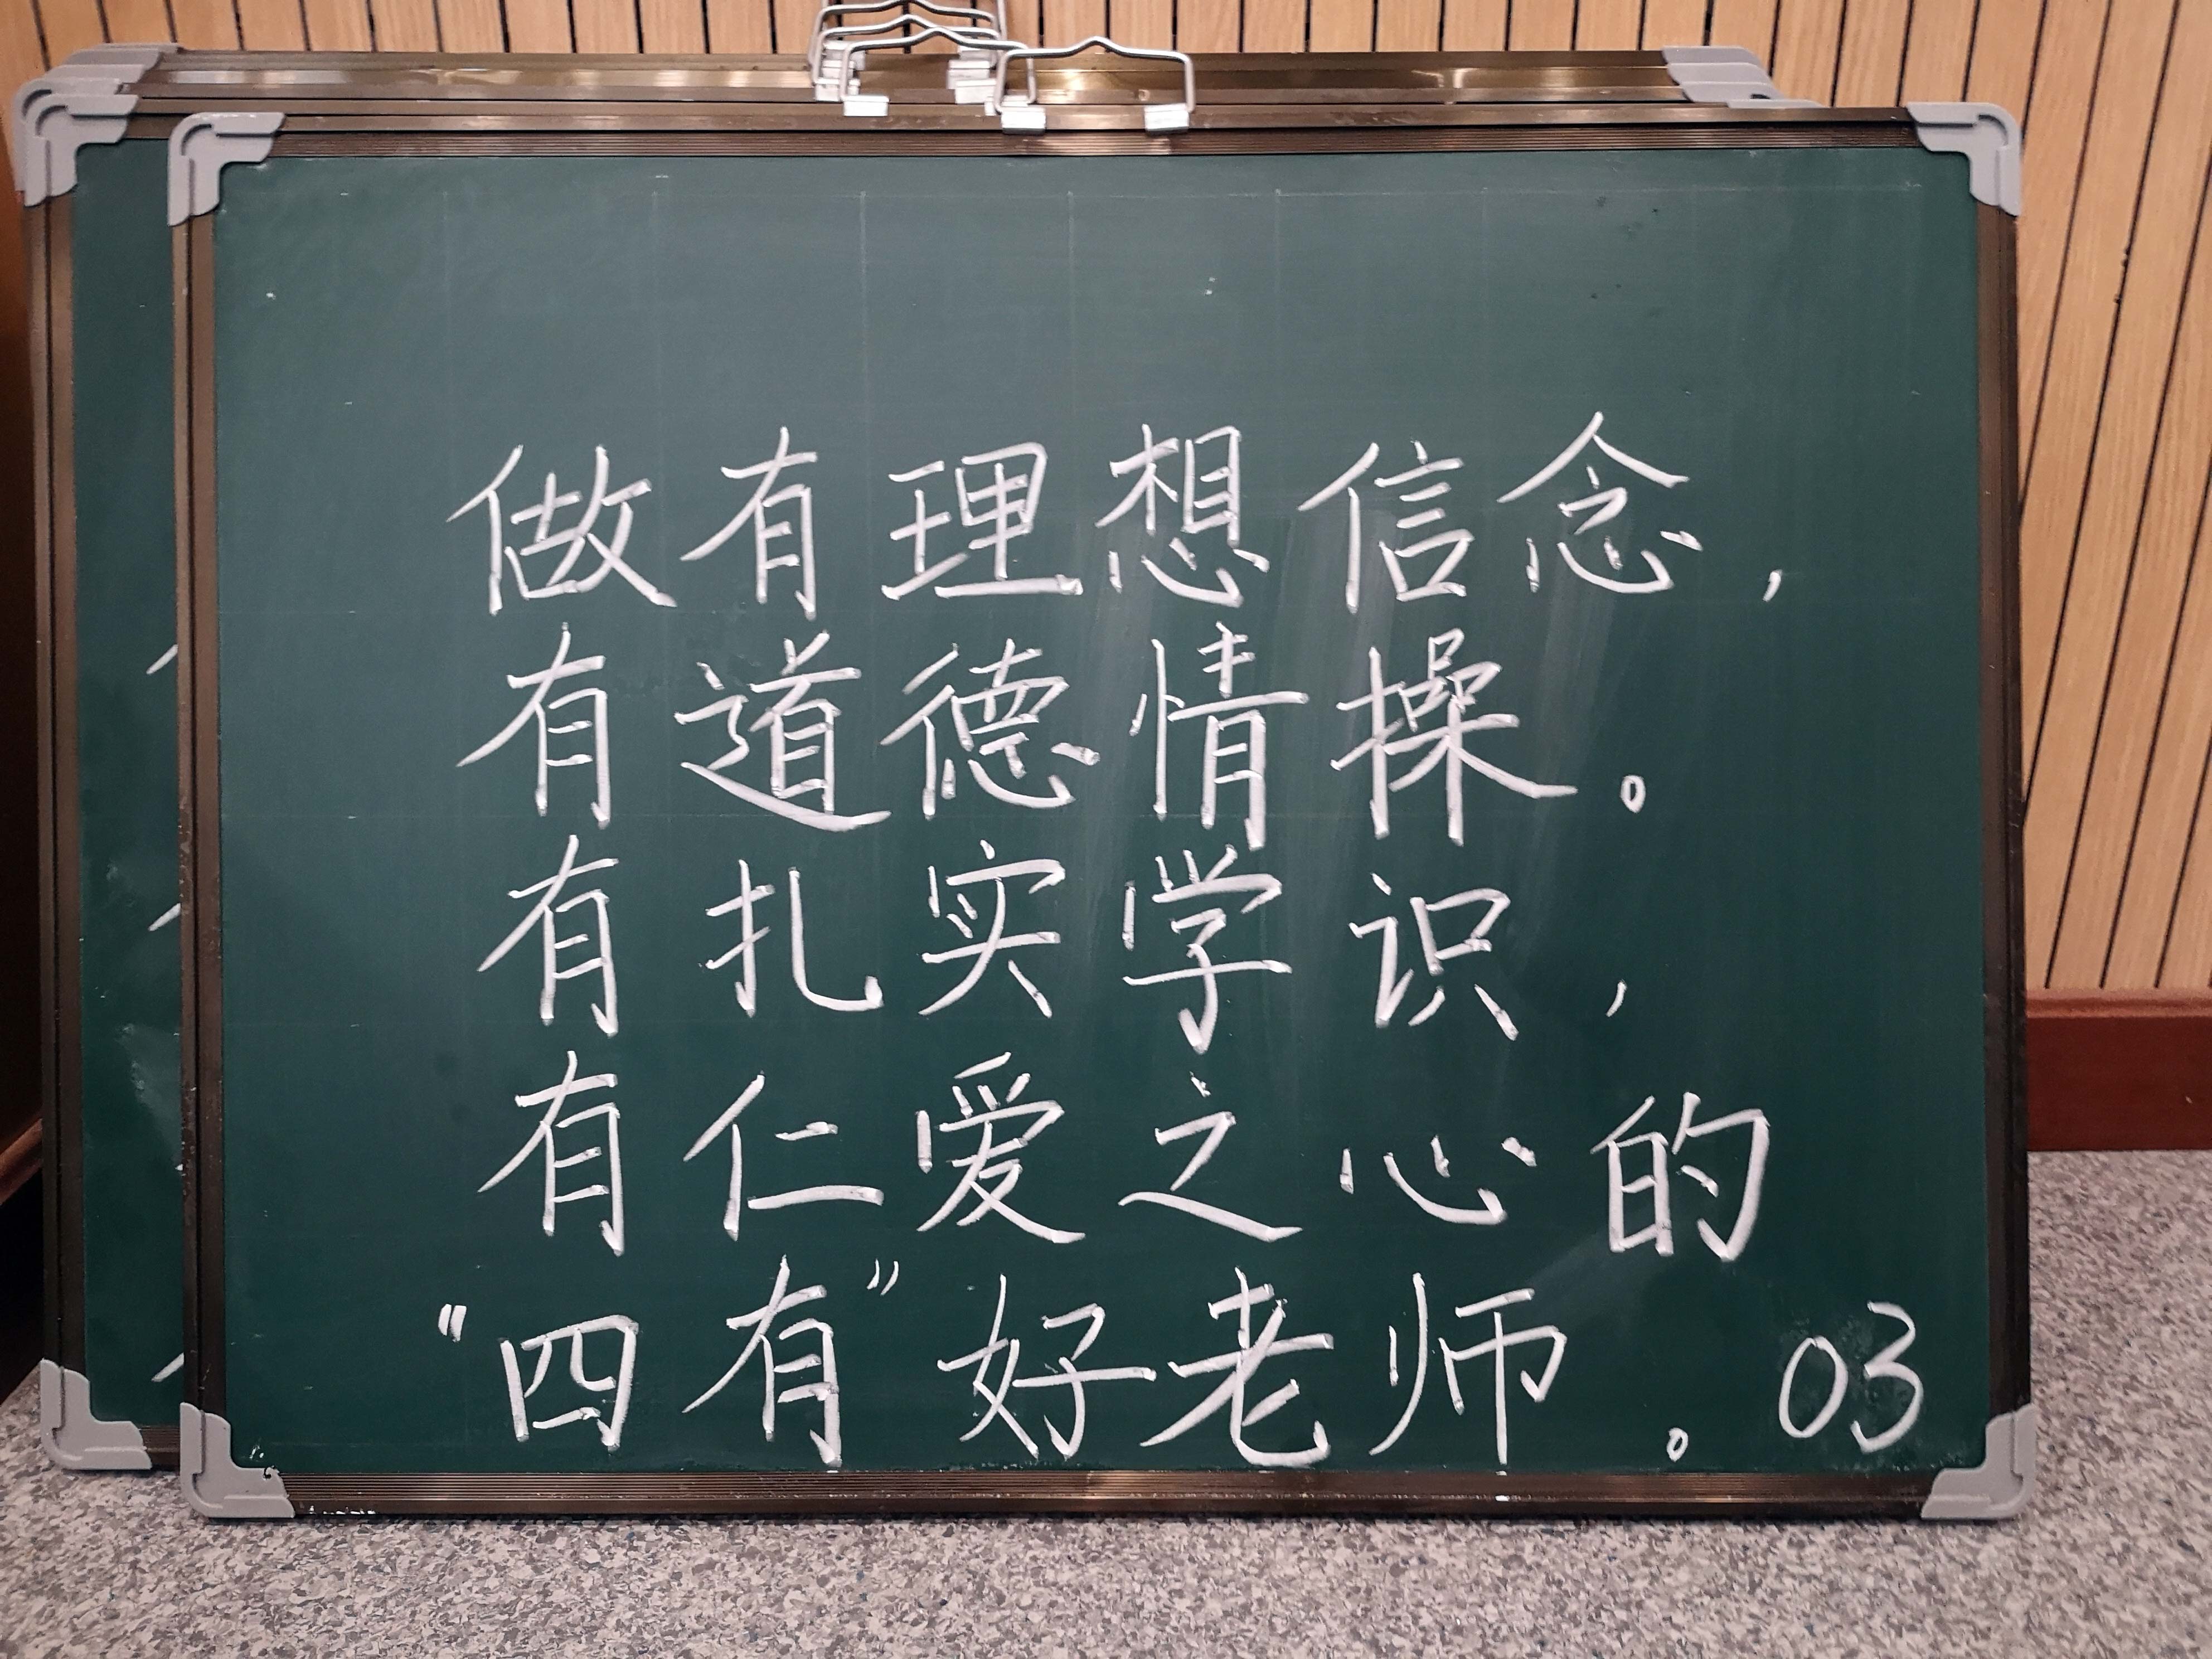 做有理想信念，
有道德情操。
有扎实学识，
有仁爱之心的
“四有”好老师。03